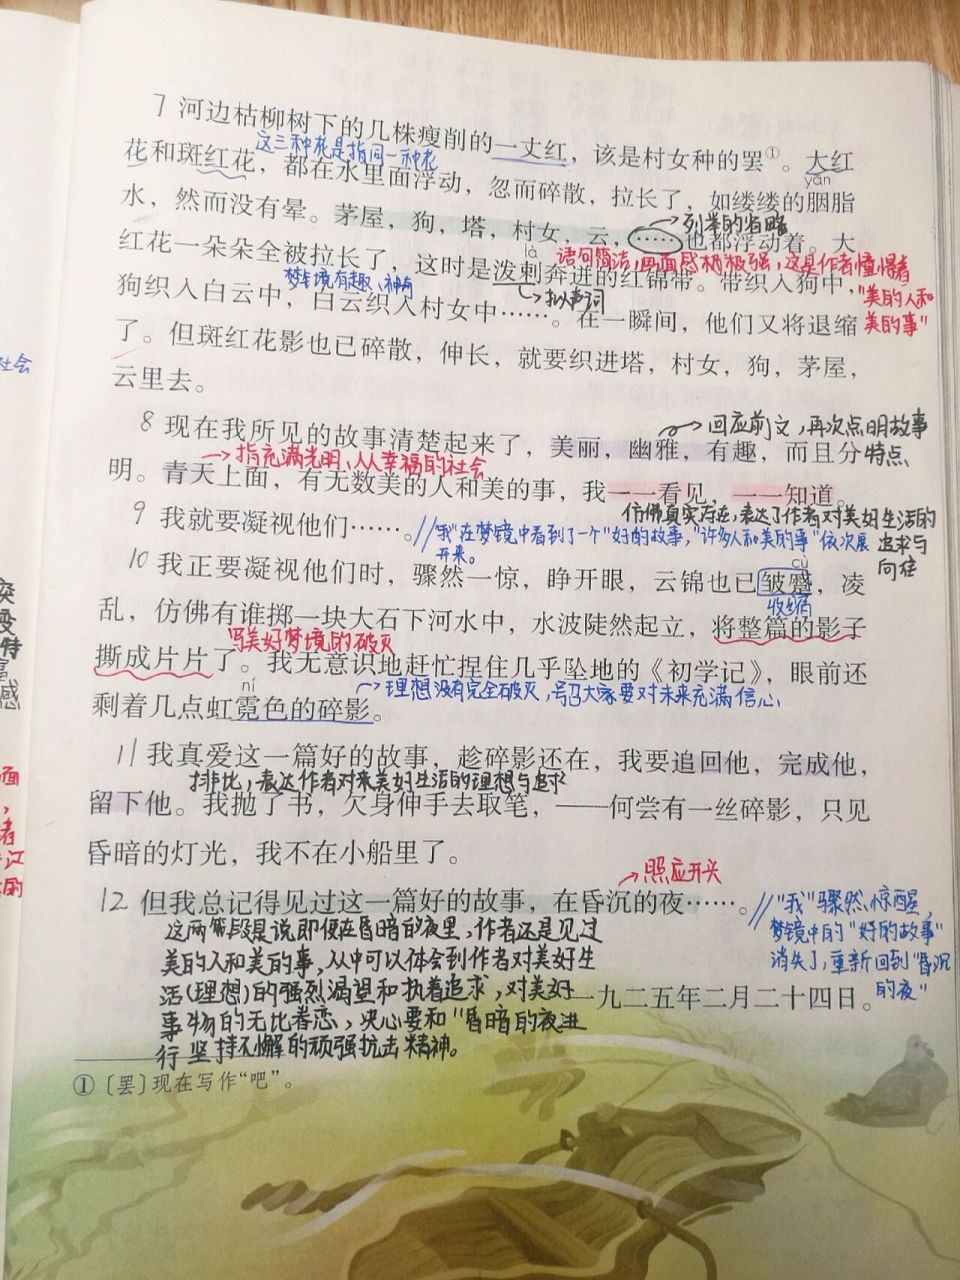 7 河边枯柳树下的几株瘦削的一丈红，该是村女种的罢①。大红
这三种花是指同一种花
花和斑红花，都在水里面浮动，忽而碎散，拉长了，如缕缕的胭脂
yān
水，然而没有晕。茅屋，狗，塔，村女，云，……也都浮动着。大
列举的省略
红花一朵朵全被拉长了，这时是泼剌奔迸的红锦带。带织人狗中，
là
语句简洁，画面感极强，这是作者憧憬着
"美的人和
美的事"
梦境有趣、神奇
拟声词
狗织入白云中，白云织人村女中……。在一瞬间，他们又将退缩
了。但斑红花影也已碎散，伸长，就要织进塔，村女，狗，茅屋，
社会
云里去。
8 现在我所见的故事清楚起来了，美丽，幽雅，有趣，而且分
回应前文，再次点明故事
特点
明。青天上面，有无数美的人和美的事，我一一看见，一一知道。
指充满光明、人人幸福的社会
仿佛真实存在，表达了作者对美好生活的
追求与
向往
9 我就要凝视他们……。
//"我"在梦镜中看到了一个"好的故事，"许多人和美的事"依次展
开来。
10 我正要凝视他们时，骤然一惊，睁开眼，云锦也已皱蹙，凌
cù
收缩
乱，仿佛有谁掷一块大石下河水中，水波陡然起立，将整篇的影子
写美好梦境的破灭
撕成片片了。我无意识地赶忙捏住几乎坠地的《初学记》，眼前还
ní
理想没有完全破灭，号召大家要对未来充满信心
剩着几点虹霓色的碎影。
11 我真爱这一篇好的故事，趁碎影还在，我要追回他，完成他，
排比，表达作者对来美好生活的理想与追求
留下他。我抛了书，欠身伸手去取笔，——何尝有一丝碎影，只见
昏暗的灯光，我不在小船里了。
照应开头
12 但我总记得见过这一篇好的故事，在昏沉的夜……。
//"我"骤然惊醒，
梦镜中的"好的故事"
消失了，重新回到"昏沉
的夜"
这两段是说即使在昏暗的夜里，作者还是见过
美的人和美的事，从中可以体会到作者对美好生
活(理想)的强烈渴望和执着追求，对美好
一九二五年二月二十四日。
事物的无比眷恋，决心要和"昏暗的夜进
行坚持不懈的顽强抗击精神。
①〔罢〕现在写作"吧"。